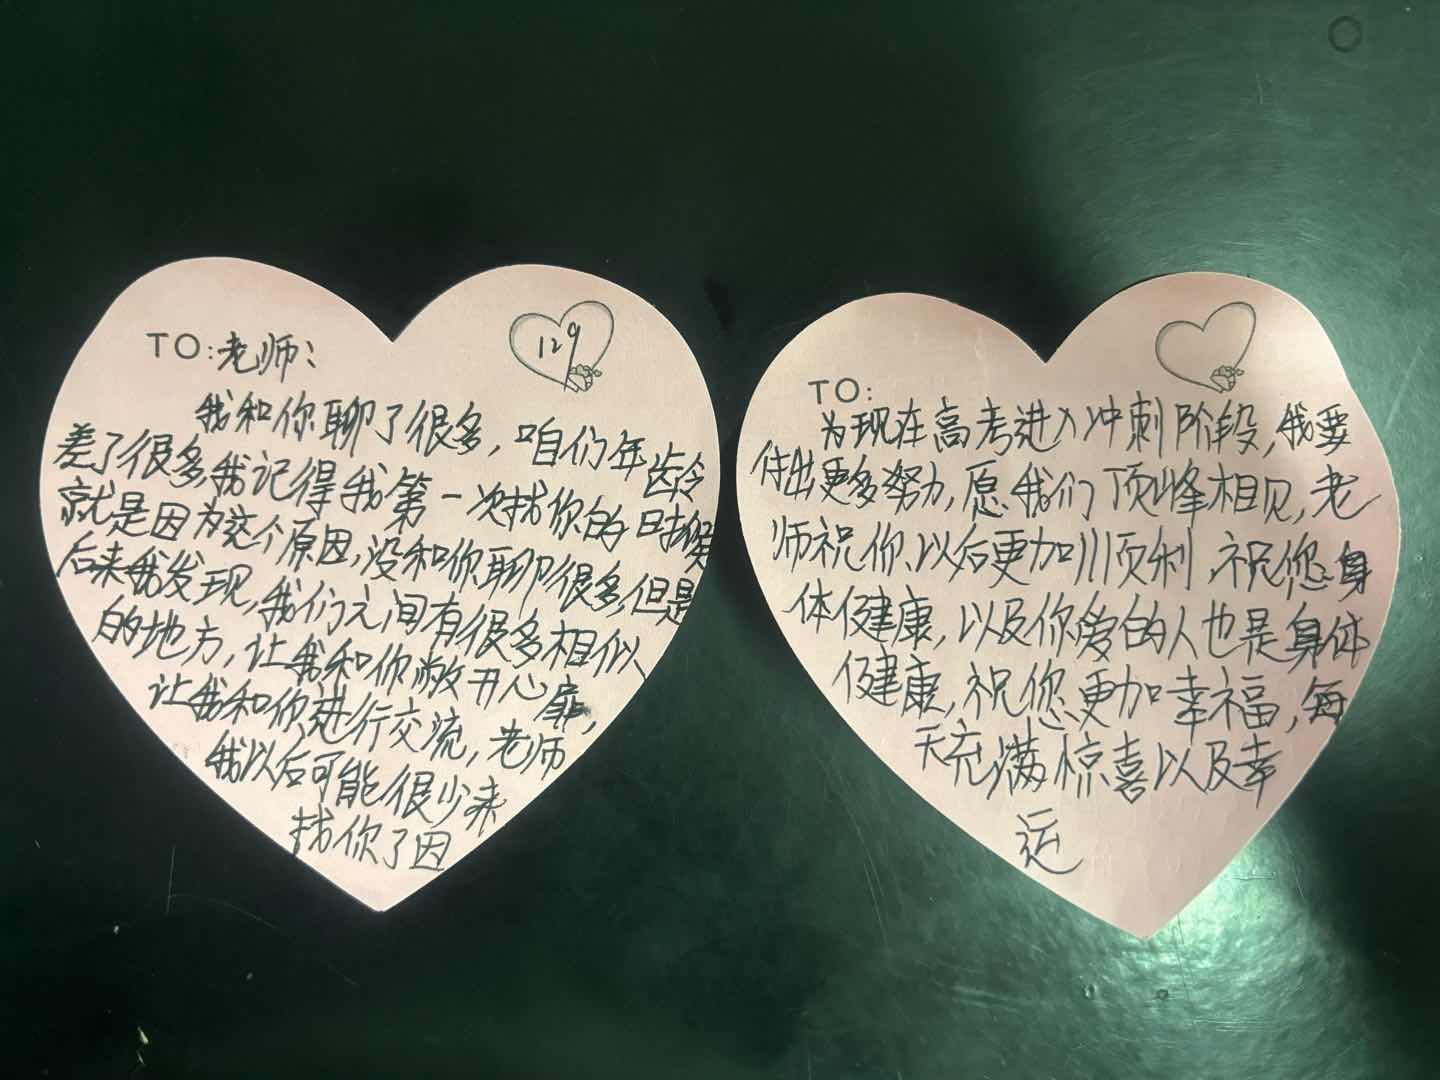 TO:老师：
129
我和你聊了很多，咱们年龄
差了很多，我记得我第一次找你的时候
就是因为这个原因，没和你聊很多，但是
后来我发现，我们之间有很多相似
的地方，让我和你敞开心扉，
让我和你进行交流，老师
我以后可能很少来
找你了因
TO:
为现在高考进入冲刺阶段，我要
付出更多努力，愿我们顶峰相见，老
师祝你以后更加顺利，祝您身
体健康，以及你爱的人也是身体
健康，祝您更加幸福，每
天充满惊喜以及幸
运